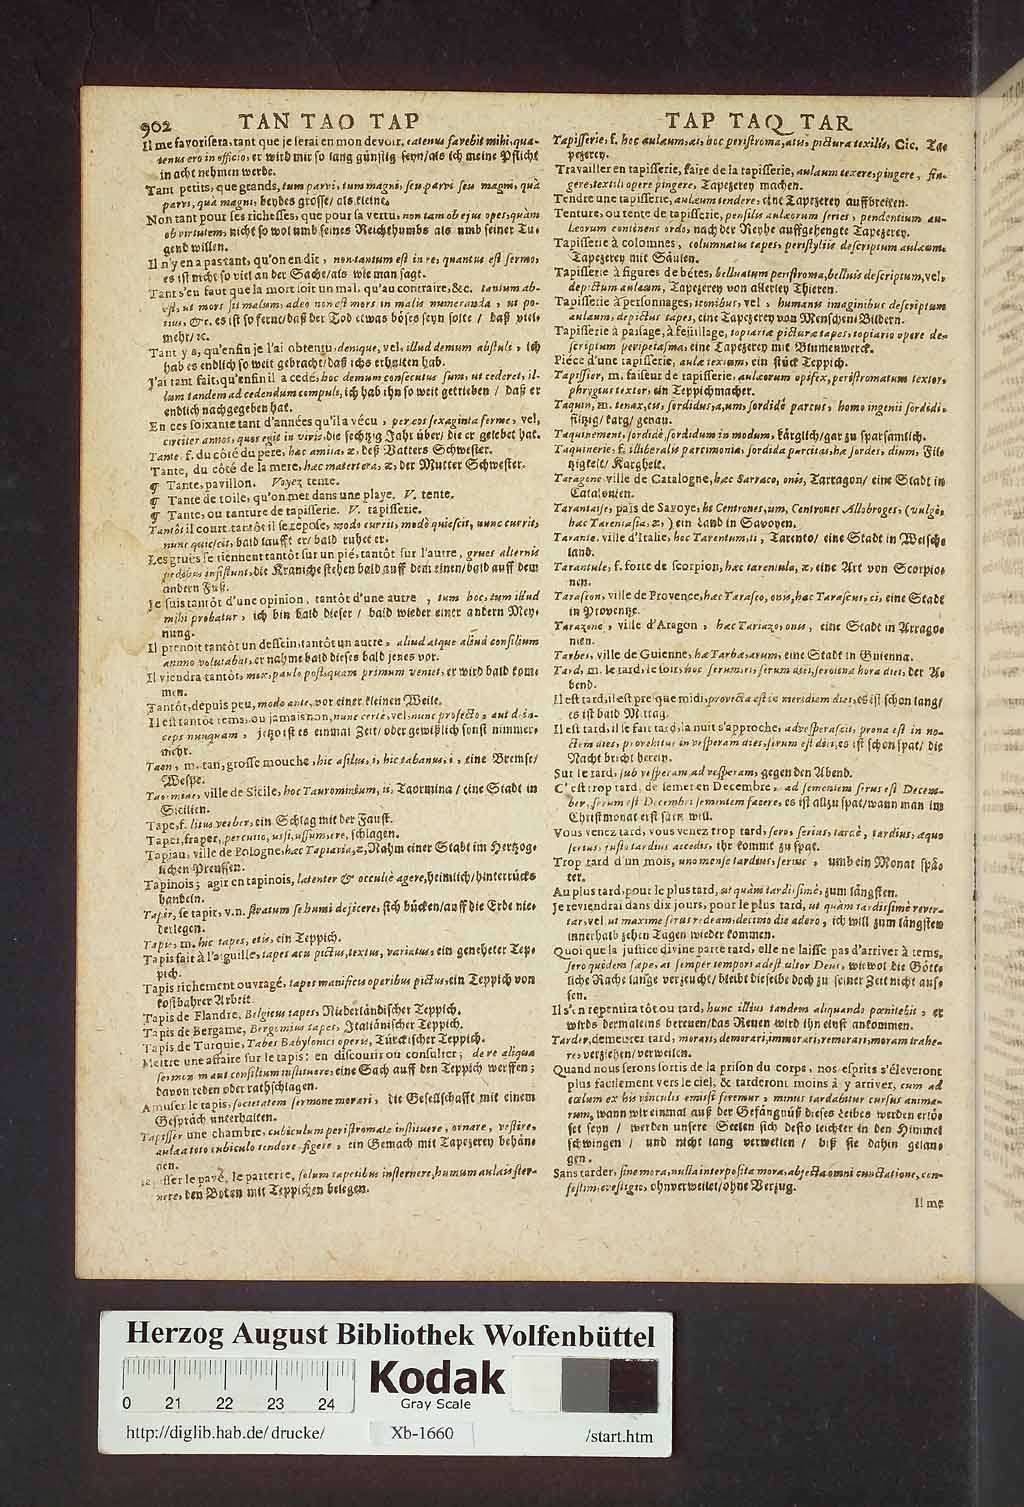 902 TAN TAO TAP
Il me favorisera, tant que je serai en mon devoir, eatenus favebit mihi, qua-
tenus ero in officio, er wird mir so lang günstig seyn/als ich meine Pflicht
in acht nehmen werde.
Tant petits, que grands, tum parvi, tum magni, seu parvi seu magni, quà
parvi, quà magni, beydes grosse/ als kleine.
Non tant pour ses richesses, que pour sa vertu, non tam ob ejus opes, quàm
ob virtutem, nicht so wol umb seines Reichthumbs als umb seiner Tu-
gend willen.
Il n'y en a pas tant, qu'on en dit, non tantum est in re, quantus est sermo,
es ist nicht so viel an der Sache/als wie man sagt.
Tant s'en faut que la mort soit un mal, qu'au contraire, &c. tantum ab-
est, ut mors sit malum, adeo non est mors in malis numeranda, ut po-
tius, &c. es ist so ferne/daß der Tod etwas böses seyn solte / daß viel-
mehr/ ꝛc.
Tant y a, qu'enfin je l'ai obtenu, denique, vel, illud demum abstuli, ich
hab es endlich so weit gebracht/daß ichs erhalten hab.
J'ai tant fait, qu'enfin il a cedé, hoc demum consecutus sum, ut cederet, il-
lum tandem ad cedendum compuli, ich hab ihn so weit getrieben / daß er
endlich nachgegeben hat.
En ces soixante tant d'années qu'il a vécu, per eos sexaginta ferme, vel,
circiter annos, quos egit in vivis, die sechzig Jahr über/ die er gelebet hat.
Tante, f. du côté du pere, hæc amita, æ, deß Vatters Schwester.
Tante, du côté de la mere, hæc matertera, æ, der Mutter Schwester.
¶ Tante, pavillon. Voyez tente.
¶ Tante de toile, qu'on met dans une playe. V. tente.
¶ Tante, ou tanture de tapisserie. V. tapisserie.
Tantôt il court, tantôt il se repose, modo currit, modò quiescit, nunc currit,
nunc quiescit, bald laufft er/ bald ruhet er.
Les gruës se tiennent tantôt sur un pié, tantôt sur l'autre, grues alternis
pedibus insistunt, die Kraniche stehen bald auff dem einen/bald auff dem
andern Fuß.
Je suis tantôt d'une opinion, tantôt d'une autre, tum hoc, tum illud
mihi probatur, ich bin bald dieser / bald wieder einer andern Mey-
nung.
Il prenoit tantôt un dessein, tantôt un autre, aliud atque aliud consilium
animo volutabat, er nahme bald dieses bald jenes vor.
Il viendra tantôt, mox, paulo post, quam primum veniet, er wird bald kom-
men.
Tantôt, depuis peu, modo ante, vor einer kleinen Weile.
Il est tantôt tems, ou jamais non, nunc certè, vel, nunc profecto, aut dein-
ceps nunquam, jetzo ist es einmal Zeit/ oder gewißlich sonst nimmer-
mehr.
Taon, m. tan, grosse mouche, hic asilus, i, hic tabanus, i, eine Bremse/
Wespe.
Taormine, ville de Sicile, hoc Taurominium, ii, Taormina / eine Stadt in
Sicilien.
Tape, f. ein Schlag mit der Faust.
Taper, fraper, percutio, ussi, ussum, ere, schlagen.
Tapiau, ville de Pologne, hæc Tapiavia, æ, Nahm einer Stadt im Hertzog-
lichen Preussen.
Tapinois; agir en tapinois, latenter & occultè agere, heimlich/hinterrücks
handeln.
Tapir, se tapir, v.n. stratum se humi dejicere, sich bücken/auff die Erde nie-
derlegen.
Tapis, m. hic tapes, etis, ein Teppich.
Tapis fait à l'aiguille, tapes acu pictus, textus, variatus, ein geneheter Tep-
pich.
Tapis richement ouvragé, tapes manificis operibus pictus, ein Teppich von
kostbahrer Arbeit.
Tapis de Flandre, Belgicus tapes, Niderländischer Teppich.
Tapis de Bergame, Bergomius tapes, Italiänischer Teppich.
Tapis de Turquie, Tapes Babylonici operis, Türckischer Teppich.
Mettre une affaire sur le tapis: en discourir ou consulter; de re aliqua
sermonem aut consilium instituere, eine Sach auff den Teppich werffen;
davon reden oder rathschlagen.
Amuser le tapis, societatem sermone morari, die Gesellschafft mit einem
Gespräch unterhalten.
Tapisser une chambre, cubiculum peristromate instituere, ornare, vestire,
aulæa toto cubiculo tendere, figere, ein Gemach mit Tapezerey behän-
gen.
Tapisser le pavé, le parterre, solum tapetibus insternere, humum aulæis ster-
nere, den Boten mit Teppichen belegen.
TAP TAQ TAR
Tapisserie, f. hoc aulæum, æi, hoc peristroma, atis, pictura textilis, Cic. Ta-
pezerey.
Travailler en tapisserie, faire de la tapisserie, aulæum texere, pingere, fin-
gere, textili opere pingere, Tapezerey machen.
Tendre une tapisserie, aulæum tendere, eine Tapezerey auffbreiten.
Tenture, ou tente de tapisserie, pensilis aulæorum series, pendentium au-
læorum continens ordo, nach der Reyhe auffgehengte Tapezerey.
Tapisserie à colomnes, columnatus tapes, peristyliis descriptum aulæum,
Tapezerey mit Säulen.
Tapisserie à figures de bétes, belluatum peristroma, belluis descriptum, vel,
depictum aulæum, Tapezerey von allerley Thieren.
Tapisserie à personnages, iconibus, vel, humanis imaginibus descriptum
aulæum, depictus tapes, eine Tapezerey von Menschen Bildern.
Tapisserie à païsage, à feüillage, topiariæ picturæ tapes, topiario opere de-
scriptum peripetasma, eine Tapezerey mit Blumenwerck.
Piéce d'une tapisserie, aulæ textum, ein stück Teppich.
Tapissier, m. faiseur de tapisserie, aulæorum opifex, peristromatum textor,
phrygius textor, ein Teppichmacher.
Taquin, m. tenax, cis, sordidus, a, um, sordidè parcus, homo ingenii sordidi,
filtzig/karg/ genau.
Taquinement, sordidè, sordidum in modum, kärglich/gar zu sparsamlich.
Taquinerie, f. illiberalis parcimonia, sordida parcitas, hæ sordes, dium, Fil-
tzigkeit/ Kargheit.
Taragone ville de Catalogne, hæc Tarraco, onis, Tarragon/ eine Stadt in
Catalonien.
Tarantaise, païs de Savoye, hi Centrones, um, Centrones Allobroges, (vulgò,
hæc Tarentasia, æ,) ein Land in Savoyen.
Tarante, ville d'Italie, hoc Tarentum, ti, Tarento/ eine Stadt in Welsch-
land.
Tarantule, f. sorte de scorpion, hæc tarentula, æ, eine Art von Scorpio-
nen.
Tarascon, ville de Provence, hæc Tarasco, onis, hæc Tarascus, ci, eine Stadt
in Proventze.
Tarazone, ville d'Aragon, hæc Tariazo, onis, eine Stadt in Arrago-
nien.
Tarbes, ville de Guienne, hæ Tarbæ, arum, eine Stadt in Guienna.
Tard, m. le tard, le soir, hoc serum, ri, serum diei, serotina hora diei, der A-
bend.
Il est tard, il est presque midi, provecta est in meridiem dies, es ist schon lang/
es ist bald Mittag.
Il est tard, il se fait tard, la nuit s'approche, advesperascit, prona est in no-
ctem dies, provehitur in vesperam dies, serum est diei, es ist schon spat/ die
Nacht bricht herein.
Sur le tard, sub vesperam, ad vesperam, gegen den Abend.
C'est trop tard, de semer en Decembre, ad sementem serus est Decem-
ber, serum est Decembri sementem facere, es ist allzu spat/wann man im
Christmonat erst säen will.
Vous venez tard, vous venez trop tard, sero, serius, tardè, tardius, æquo
serius, justo tardius accedis, ihr kommt zu spat.
Trop tard d'un mois, uno mense tardius, serius, umb ein Monat spä-
ter.
Au plus tard, pour le plus tard, ut quàm tardissimè, zum längsten.
Je reviendrai dans dix jours, pour le plus tard, ut quàm tardissimè rever-
tar, vel, ut maxime serus redeam, decimo die adero, ich will zum längsten
innerhalb zehen Tagen wieder kommen.
Quoi que la justice divine parte tard, elle ne laisse pas d'arriver à tems,
sero quidem sæpe, at semper tempori adest ultor Deus, wiewol die Gött-
liche Rache lange verzeucht/ bleibt dieselbe doch zu seiner Zeit nicht aus-
sen.
Il s'en repentira tôt ou tard, hunc illius tandem aliquando pœnitebit, er
wirds dermaleins bereuen/das Reuen wird ihn einst ankommen.
Tarder, demeurer tard, morari, demorari, immorari, remorari, moram trahe-
re, verziehen/verweilen.
Quand nous serons sortis de la prison du corps, nos esprits s'éleveront
plus facilement vers le ciel, & tarderont moins à y arriver, cum ad
cælum ex his vinculis emissi feremur, minus tardabitur cursus anima-
rum, wann wir einmal auß der Gefängnüß dieses Leibes werden erlö-
set seyn / werden unsere Seelen sich desto leichter in den Himmel
schwingen / und nicht lang verweilen / biß sie dahin gelan-
gen.
Sans tarder, sine mora, nulla interposita mora, abjecta omni cunctatione, con-
festim, e vestigio, ohnverweilet/ohne Verzug.
Il me
Herzog August Bibliothek Wolfenbüttel
Kodak
Gray Scale
0 21 22 23 24
http://diglib.hab.de/drucke/ Xb-1660 /start.htm